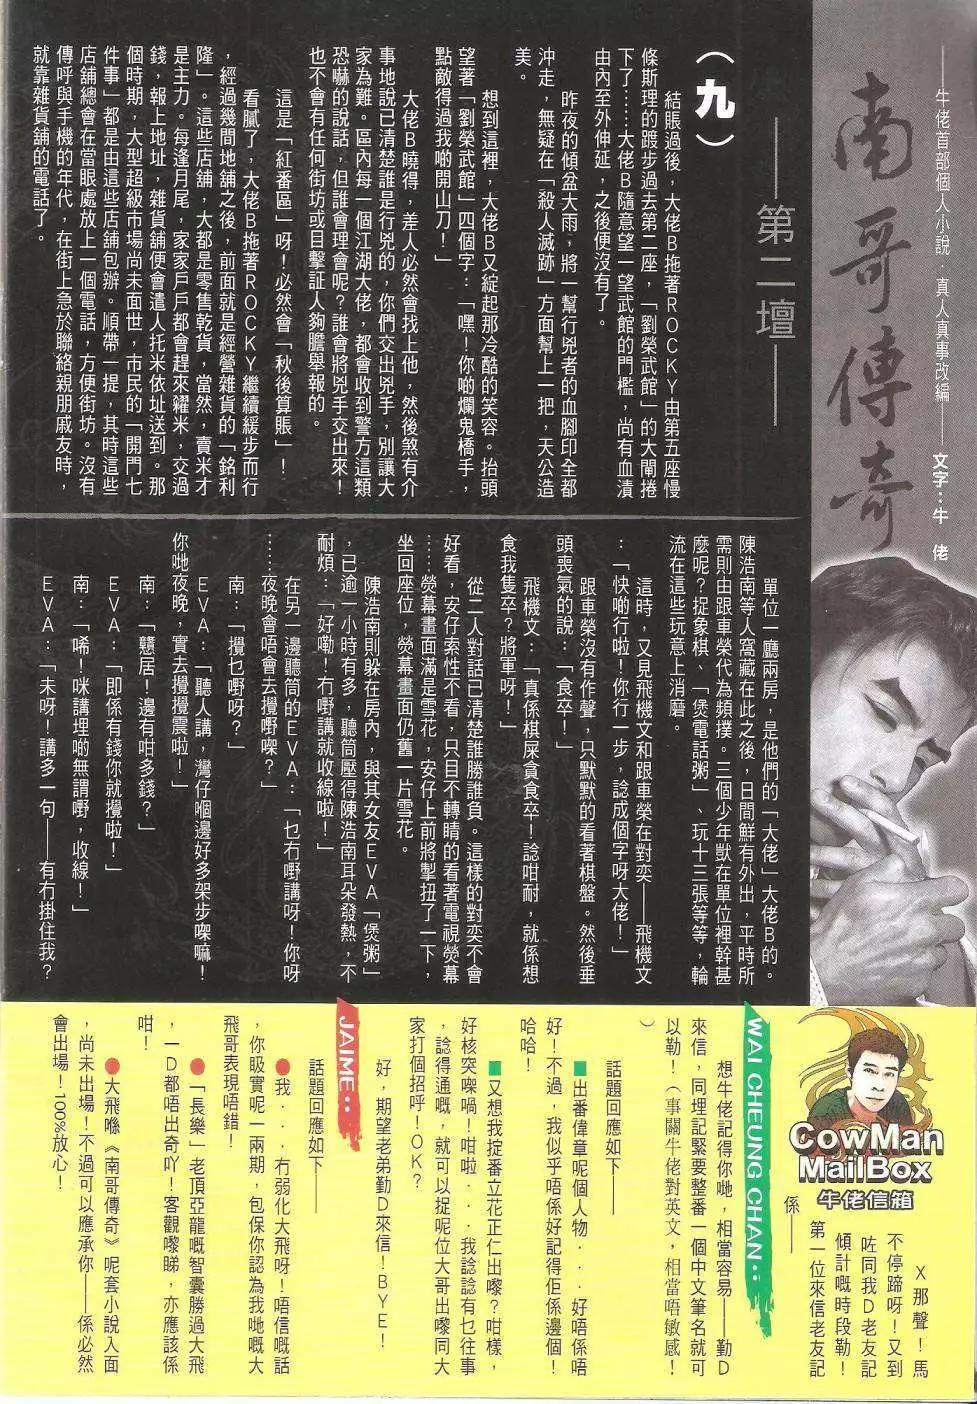 ——牛佬首部個人小說．真人真事改編——文字：牛 佬
南哥傳奇
——第二壇——
（九）
結賬過後，大佬B拖著ROCKY由第五座慢
條斯理的踱步過去第二座，「劉榮武館」的大閘捲
下了……大佬B隨意望一望武館的門檻，尚有血漬
由內至外伸延，之後便沒有了。
昨夜的傾盆大雨，將一幫行兇者的血腳印全都
沖走，無疑在「殺人滅跡」方面幫上一把，天公造
美。
想到這裡，大佬B又綻起那冷酷的笑容。抬頭
望著「劉榮武館」四個字：「嘿！你啲爛鬼橋手，
點敵得過我啲開山刀！」
大佬B曉得，差人必然會找上他，然後煞有介
事地說已清楚誰是行兇的，你們交出兇手，別讓大
家為難。區內每一個江湖大佬，都會收到警方這類
恐嚇的說話，但誰會理會呢？誰會將兇手交出來！
也不會有任何街坊或目擊証人夠膽舉報的。
這是「紅番區」呀！必然會「秋後算賬」！
看膩了，大佬B拖著ROCKY繼續緩步而行
，經過幾間地舖之後，前面就是經營雜貨的「銘利
隆」。這些店舖，大都是零售乾貨，當然，賣米才
是主力。每逢月尾，家家戶戶都會趕來糴米，交過
錢，報上地址，雜貨舖便會遣人托米依址送到。那
個時期，大型超級市場尚未面世，市民的「開門七
件事」都是由這些店舖包辦。順帶一提，其時這些
店舖總會在當眼處放上一個電話，方便街坊。沒有
傳呼與手機的年代，在街上急於聯絡親朋戚友時，
就靠雜貨舖的電話了。
單位一廳兩房，是他們的「大佬」大佬B的。
陳浩南等人窩藏在此之後，日間鮮有外出，平時所
需則由跟車榮代為頻撲。三個少年獸在單位裡幹甚
麼呢？捉象棋、「煲電話粥」、玩十三張等等，輪
流在這些玩意上消磨。
這時，又見飛機文和跟車榮在對奕——飛機文
：「快啲行啦！你行一步，諗成個字呀大佬！」
跟車榮沒有作聲，只默默的看著棋盤。然後垂
頭喪氣的說：「食卒！」
飛機文：「真係棋屎貪食卒！諗咁耐，就係想
食我隻卒？將軍呀！」
從二人對話已清楚誰勝誰負。這樣的對奕不會
好看，安仔索性不看，只目不轉睛的看著電視熒幕
……熒幕畫面滿是雪花，安仔上前將掣扭了一下，
坐回座位，熒幕畫面仍舊一片雪花。
陳浩南則躲在房內，與其女友EVA「煲粥」
，已逾一小時有多，聽筒壓得陳浩南耳朵發熱，不
耐煩：「好嘞！冇嘢講就收線啦！」
在另一邊聽筒的EVA：「乜冇嘢講呀！你呀
……夜晚會唔會去攪嘢㗎？」
南：「攪乜嘢呀？」
EVA：「聽人講，灣仔嗰邊好多架步㗎嘛！
你哋夜晚，實去攪攪震啦！」
南：「戇居！邊有咁多錢？」
EVA：「即係有錢你就攪啦！」
南：「唏！咪講埋啲無謂嘢，收線！」
EVA：「未呀！講多一句——有冇掛住我？
CowMan
MailBox
牛佬信箱
X那聲！馬
不停蹄呀！又到
咗同我D老友記
傾計嘅時段勒！
第一位來信老友記
係——
WAI CHEUNG CHAN：
想牛佬記得你哋，相當容易——勤D
來信，同埋記緊要整番一個中文筆名就可
以勒！（事關牛佬對英文，相當唔敏感！
）
話題回應如下——
■出番偉章呢個人物．．．好唔係唔
好！不過，我似乎唔係好記得佢係邊個！
哈哈！
■又想我掟番立花正仁出嚟？咁樣，
好核突㗎喎！咁啦．．．我諗諗有乜往事
，諗得通嘅，就可以捉呢位大哥出嚟同大
家打個招呼！OK？
好，期望老弟勤D來信！BYE！
JAIME：
話題回應如下——
●我．．．冇弱化大飛呀！唔信嘅話
，你睬實呢一兩期，包保你認為我哋嘅大
飛哥表現唔錯！
●「長樂」老頂亞龍嘅智囊勝過大飛
，一D都唔出奇吖！客觀嚟睇，亦應該係
咁！
●大飛喺《南哥傳奇》呢套小說入面
，尚未出場！不過可以應承你——係必然
會出場！100%放心！